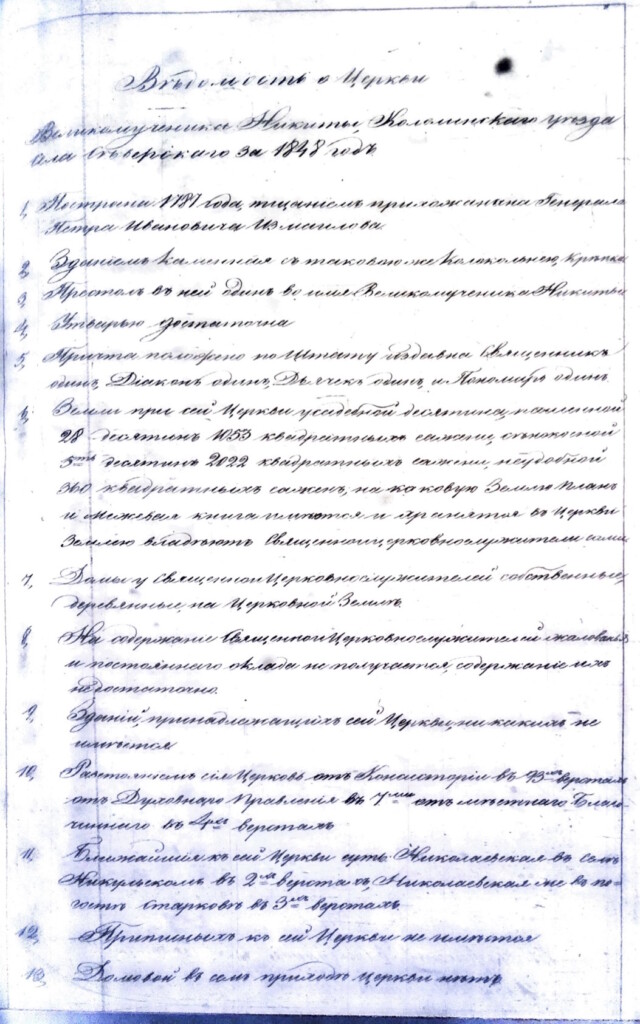 Вѣдомость о Церкви
Великомученика Никиты, Коломинскаго уѣзда
села Сѣверскаго за 1848 годъ
1, Построена 1787 года, тщаніемъ прихожанина Генерала
Петра Ивановича Измаилова
2, Зданіемъ каменная съ таковою же Колокольнею, Крѣпка
3, Престолъ въ ней одинъ во имя Великомученика Никиты
4, Утварью достаточна
5, Причта положено по Штату издавна Священникъ
одинъ, Діаконъ одинъ, Дьячекъ одинъ, и Пономарь одинъ
6, Земли при сей Церкви усадебной десятина, пашенной
28 десятинъ 1053 квадратныхъ сажени, сѣнокосной
5ть десятинъ 2022 квадратныхъ сажени, неудобной
360 квадратныхъ саженъ, на каковую Землю планъ
и Межевая книга имѣются и хранятся въ Церкви
Землею владѣютъ Священноицерковнослужители сами
7, Домы у Священноицерковнослужителей собственные,
деревянные, на Церковной Землѣ
8, На содержаніе Священноицерковнослужителей жалованья
и постояннаго оклада не получается, содержаніе ихъ
недостаточно
9, Зданій, принадлежащихъ сей Церкви, никакихъ не
имѣется
10, Разстояніемъ сія Церковь отъ Консисторіи въ верстахъ
отъ Духовнаго Правленія въ 7ми отъ мѣстнаго Благо-
чиннаго въ верстахъ
11, Ближайшія къ сей Церкви суть: Николаевская въ селѣ
Никульскомъ въ 2хъ верстахъ, Николаевская же въ по-
гостѣ Старковѣ въ 3хъ верстахъ
12, Приписныхъ къ сей Церкви не имѣется
13, Домовой въ семъ приходѣ Церкви нѣтъ